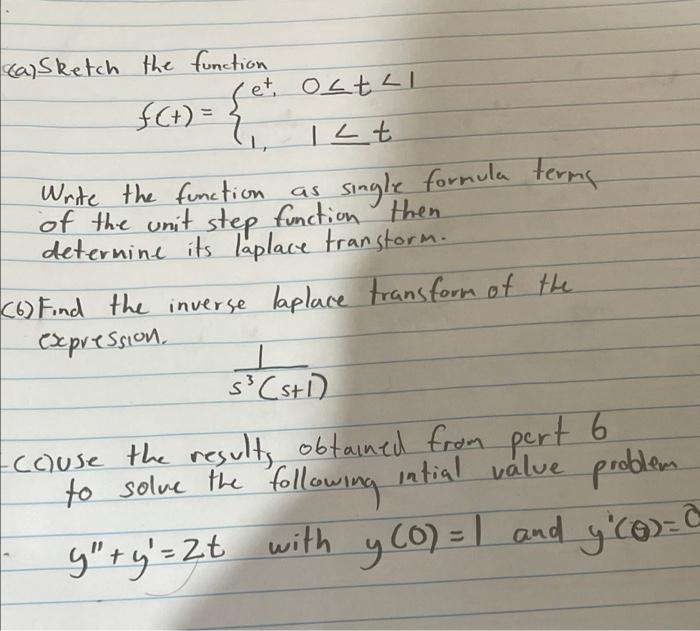 (a) Sketch the function
f(t) = { e^t, 0 ≤ t < 1
1, 1 ≤ t
Write the function as single formula terms
of the unit step function then
determine its laplace transform.
(b) Find the inverse laplace transform of the
expression.
1
s^3 (s+1)
(c) use the results obtained from part b
to solve the following intial value problem
y'' + y' = 2t with y(0) = 1 and y'(0) = 0